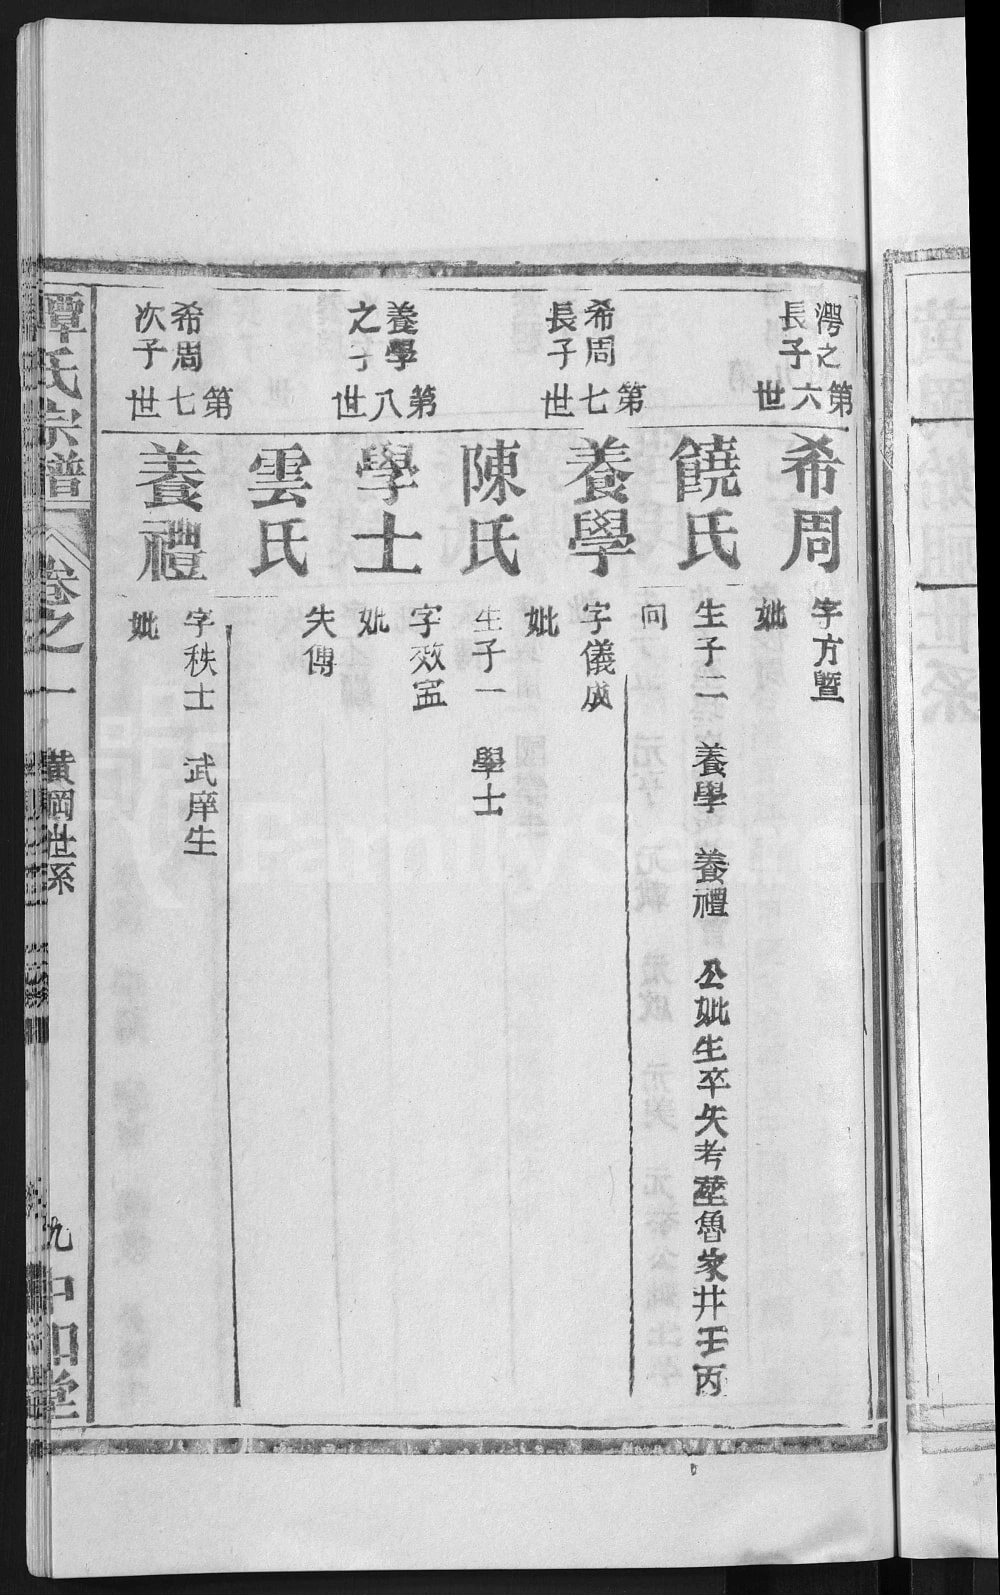 澚之長子
第六世
希周
字方曁
妣
饒氏
生子二 養學 養禮 公妣生卒失考塟魯家井壬丙
向
希周長子
第七世
養學
字儀成
妣
陳氏
生子一 學士
養學之子
第八世
學士
字效寍
妣
雲氏
失傳
希周次子
第七世
養禮
字秩士 武庠生
妣
譚氏宗譜
卷之一
黄岡世系
九
中和堂